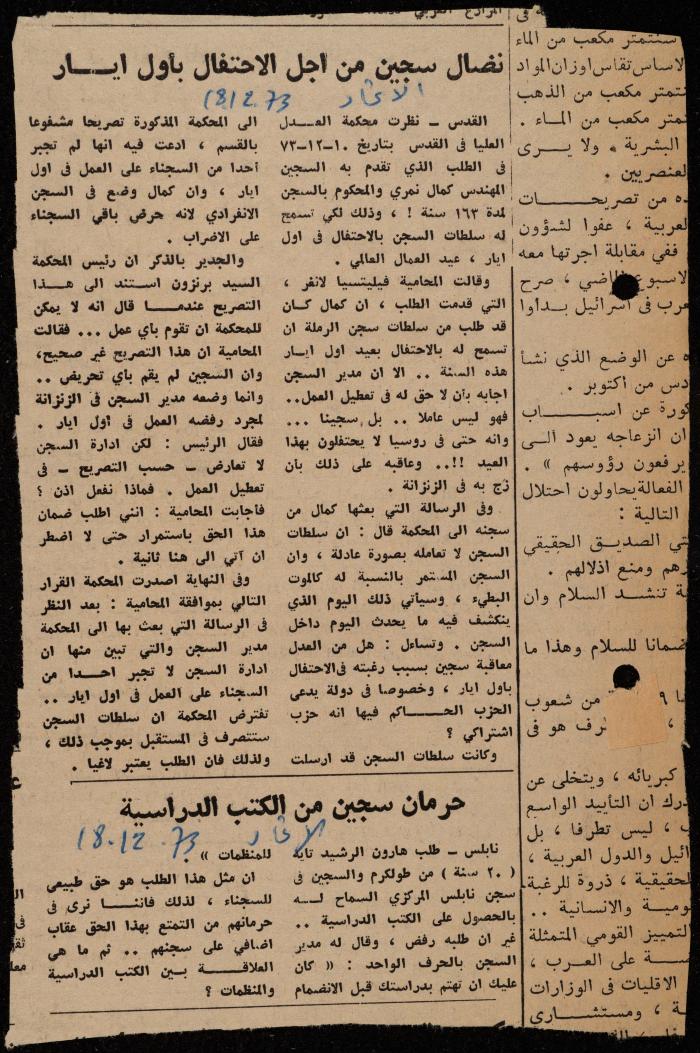 نضال سجين من اجل الاحتفال بأول ايـــار
الاتحاد 18.12.73
القدس ــ نظرت محكمة العـــدل
العليا فى القدس بتاريخ ١٠-١٢-٧٣
فى الطلب الذي تقدم به السجين
المهندس كمال نمري والمحكوم بالسجن
لمدة ١٦٣ سنة ! ، وذلك لكي تسمح
له سلطات السجن بالاحتفال فى اول
ايار ، عيد العمال العالمي .
وقالت المحامية فيليتسيا لانغر ،
التي قدمت الطلب ، ان كمال كــان
قد طلب من سلطات سجن الرملة ان
تسمح له بالاحتفال بعيد اول ايــار
هذه السنة .. الا ان مدير السجن
اجابه بأن لا حق له فى تعطيل العمل..
فهو ليس عاملا .. بل سجينا ...
وانه حتى فى روسيا لا يحتفلون بهذا
العيد !!.. وعاقبه على ذلك بأن
زج به فى الزنزانة .
وفى الرسالة التي بعثها كمال من
سجنه الى المحكمة قال : ان سلطات
السجن لا تعامله بصورة عادلة ، وان
السجن المستمر بالنسبة له كالموت
البطيء ، وسيأتي ذلك اليوم الذي
ينكشف فيه ما يحدث اليوم داخل
السجن . وتساءل : هل من العدل
معاقبة سجين بسبب رغبته فىالاحتفال
باول ايار ، وخصوصا فى دولة يدعى
الحزب الحـــاكم فيها انه حزب
اشتراكي ؟
وكانت سلطات السجن قد ارسلت
الى المحكمة المذكورة تصريحا مشفوعا
بالقسم ، ادعت فيه انها لم تجبر
أحدا من السجناء على العمل فى اول
ايار ، وان كمال وضع فى السجن
الانفرادي لانه حرض باقي السجناء
على الاضراب .
والجدير بالذكر ان رئيس المحكمة
السيد برنزون استند الى هـــذا
التصريح عندمــا قال انه لا يمكن
للمحكمة ان تقوم بأي عمل ... فقالت
المحامية ان هذا التصريح غير صحيح،
وان السجين لم يقم باي تحريض ..
وانما وضعه مدير السجن فى الزنزانة
لمجرد رفضه العمل فى اول ايار .
فقال الرئيس : لكن ادارة السجن
لا تعارض ــ حسب التصريح ــ فى
تعطيل العمل . فماذا نفعل اذن ؟
فأجابت المحامية : انني اطلب ضمان
هذا الحق باستمرار حتى لا اضطر
ان آتي الى هنا ثانية .
وفى النهاية اصدرت المحكمة القرار
التالي بموافقة المحامية : بعد النظر
فى الرسالة التي بعث بها الى المحكمة
مدير السجن والتي تبين منها ان
ادارة السجن لا تجبر احـــدا من
السجناء على العمل فى اول ايار ..
تفترض المحكمة ان سلطات السجن
ستتصرف فى المستقبل بموجب ذلك ،
ولذلك فان الطلب يعتبر لاغيا .
حرمان سجين من الكتب الدراسية
الاتحاد 18.12.73
نابلس ــ طلب هارون الرشيد تايه
( ٢٠ سنة ) من طولكرم والسجين فى
سجن نابلس المركزي السماح لــه
بالحصول على الكتب الدراسية ..
غير ان طلبه رفض ، وقال له مدير
السجن بالحرف الواحد : « كان
عليك ان تهتم بدراستك قبل الانضمام
للمنظمات » .
ان مثل هذا الطلب هو حق طبيعي
للسجناء ، لذلك فاننــا نرى فى
حرمانهم من التمتع بهذا الحق عقاب
اضافي على سجنهم .. ثم ما هي
العلاقــــة بــين الكتب الدراسية
والمنظمات ؟
سنتمتر مكعب من الماء
الاساس تقاس اوزان المواد
نتمتر مكعب من الذهب
نمتر مكعب من الماء .
البشرية . ولا يــــرى
لعنصريين .
ده من تصريحــــات
لعربية ، عفوا لشؤون
ففي مقابلة اجرتها معه
لاسبوع الماضي ، صرح
عرب فى اسرائيل بدأوا
ه عن الوضع الذي نشأ
دس من اكتوبر .
كورة عن اسبـــــاب
ان انزعاجه يعود الــى
يرفعون رؤوسهم » .
الفعالةيحاولون احتلال
التالية :
تي الصديق الحقيقي
رهم ومنع اذلالهم .
ة تنشــد السلام وان
ضمانا للسلام وهذا ما
من شعوب
رف هو فى
كبريائه ، ويتخلى عن
درك ان التأييد الواسع
ب ، ليس تطرفا ، بل
ائيل والدول العربية ،
لحقيقية ، ذروة للرغبة
وميــة والانسانية ..
لتمييز القومي المتمثلة
ســة على العرب ،
الاقليات فى الوزارات
ة ، ومستشــاري